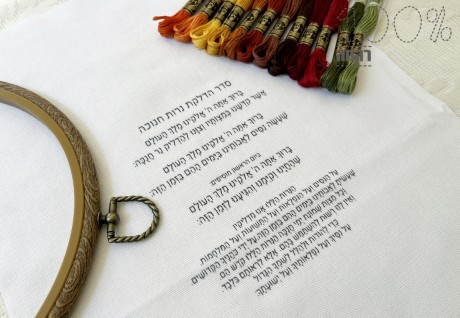 100%
סדר הדלקת נרות חנוכה
בָּרוּךְ אַתָּה ה' אֱלֹקֵינוּ מֶלֶךְ הָעוֹלָם
אֲשֶׁר קִדְּשָׁנוּ בְּמִצְוֹתָיו וְצִוָּנוּ לְהַדְלִיק נֵר חֲנֻכָּה:
בָּרוּךְ אַתָּה ה' אֱלֹקֵינוּ מֶלֶךְ הָעוֹלָם
שֶׁעָשָׂה נִסִּים לַאֲבוֹתֵינוּ בַּיָּמִים הָהֵם בַּזְּמַן הַזֶּה:
ביום הראשון מוסיפים:
בָּרוּךְ אַתָּה ה' אֱלֹקֵינוּ מֶלֶךְ הָעוֹלָם
שֶׁהֶחֱיָנוּ וְקִיְּמָנוּ וְהִגִּיעָנוּ לַזְּמַן הַזֶּה:
הַנֵּרוֹת הַלָּלוּ אָנוּ מַדְלִיקִין
עַל הַנִּסִּים וְעַל הַנִּפְלָאוֹת וְעַל הַתְּשׁוּעוֹת וְעַל הַמִּלְחָמוֹת
שֶׁעָשִׂיתָ לַאֲבוֹתֵינוּ בַּיָּמִים הָהֵם בַּזְּמַן הַזֶּה עַל יְדֵי כֹּהֲנֶיךָ הַקְּדוֹשִׁים.
וְכָל מִצְוַת שְׁמוֹנַת יְמֵי חֲנֻכָּה הַנֵּרוֹת הַלָּלוּ קֹדֶשׁ הֵם,
וְאֵין לָנוּ רְשׁוּת לְהִשְׁתַּמֵּשׁ בָּהֶם אֶלָּא לִרְאוֹתָם בִּלְבָד
כְּדֵי לְהוֹדוֹת וּלְהַלֵּל לְשִׁמְךָ הַגָּדוֹל
עַל נִסֶּיךָ וְעַל נִפְלְאוֹתֶיךָ וְעַל יְשׁוּעָתֶךָ: